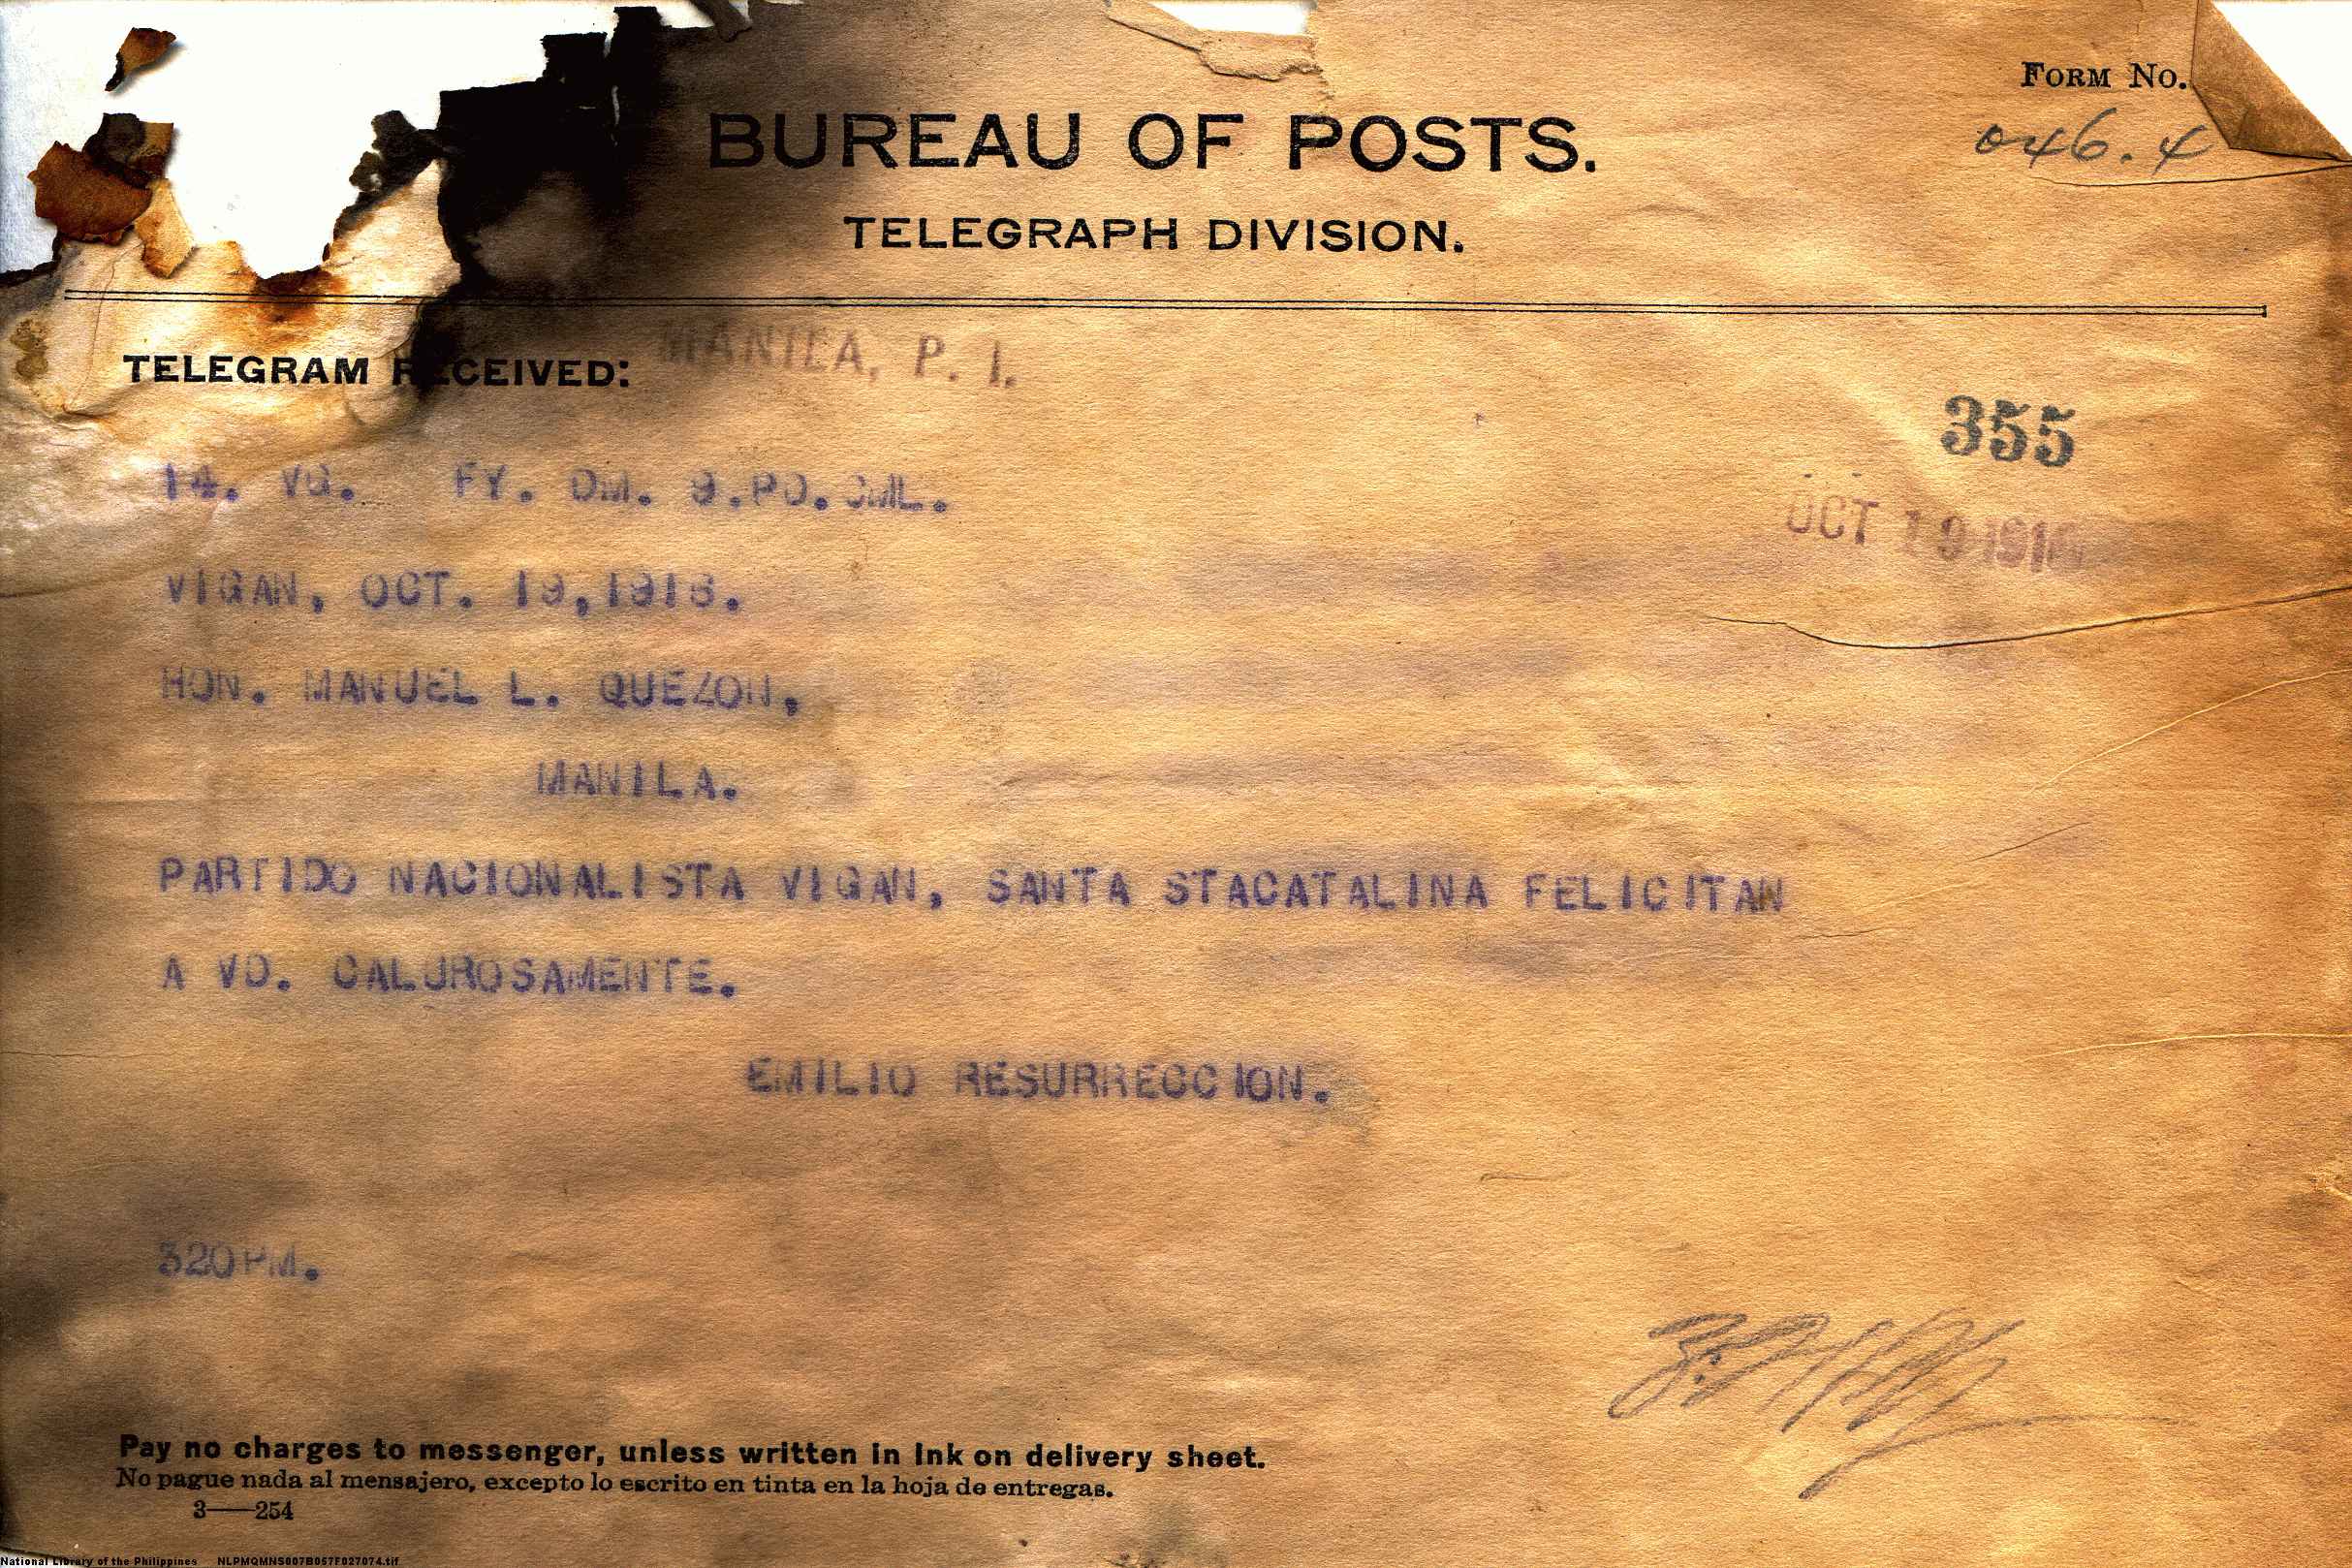 FORM No.
046.4
BUREAU OF POSTS.
TELEGRAPH DIVISION.
TELEGRAM RECEIVED:
MANILA, P. I.
355
14. VG. FY. DM. 9.PD. CML.
OCT 19 1916
VIGAN, OCT. 19,1916.
HON. MANUEL L. QUEZON,
MANILA.
PARTIDO NACIONALISTA VIGAN, SANTA STACATALINA FELICITAN
A VD. CALUROSAMENTE.
EMILIO RESURRECCION.
320PM.
Pay no charges to messenger, unless written in ink on delivery sheet.
No pague nada al mensajero, excepto lo escrito en tinta en la hoja de entregas.
3——254
National Library of the Philippines NLPMQMNS007B057F027074.tif